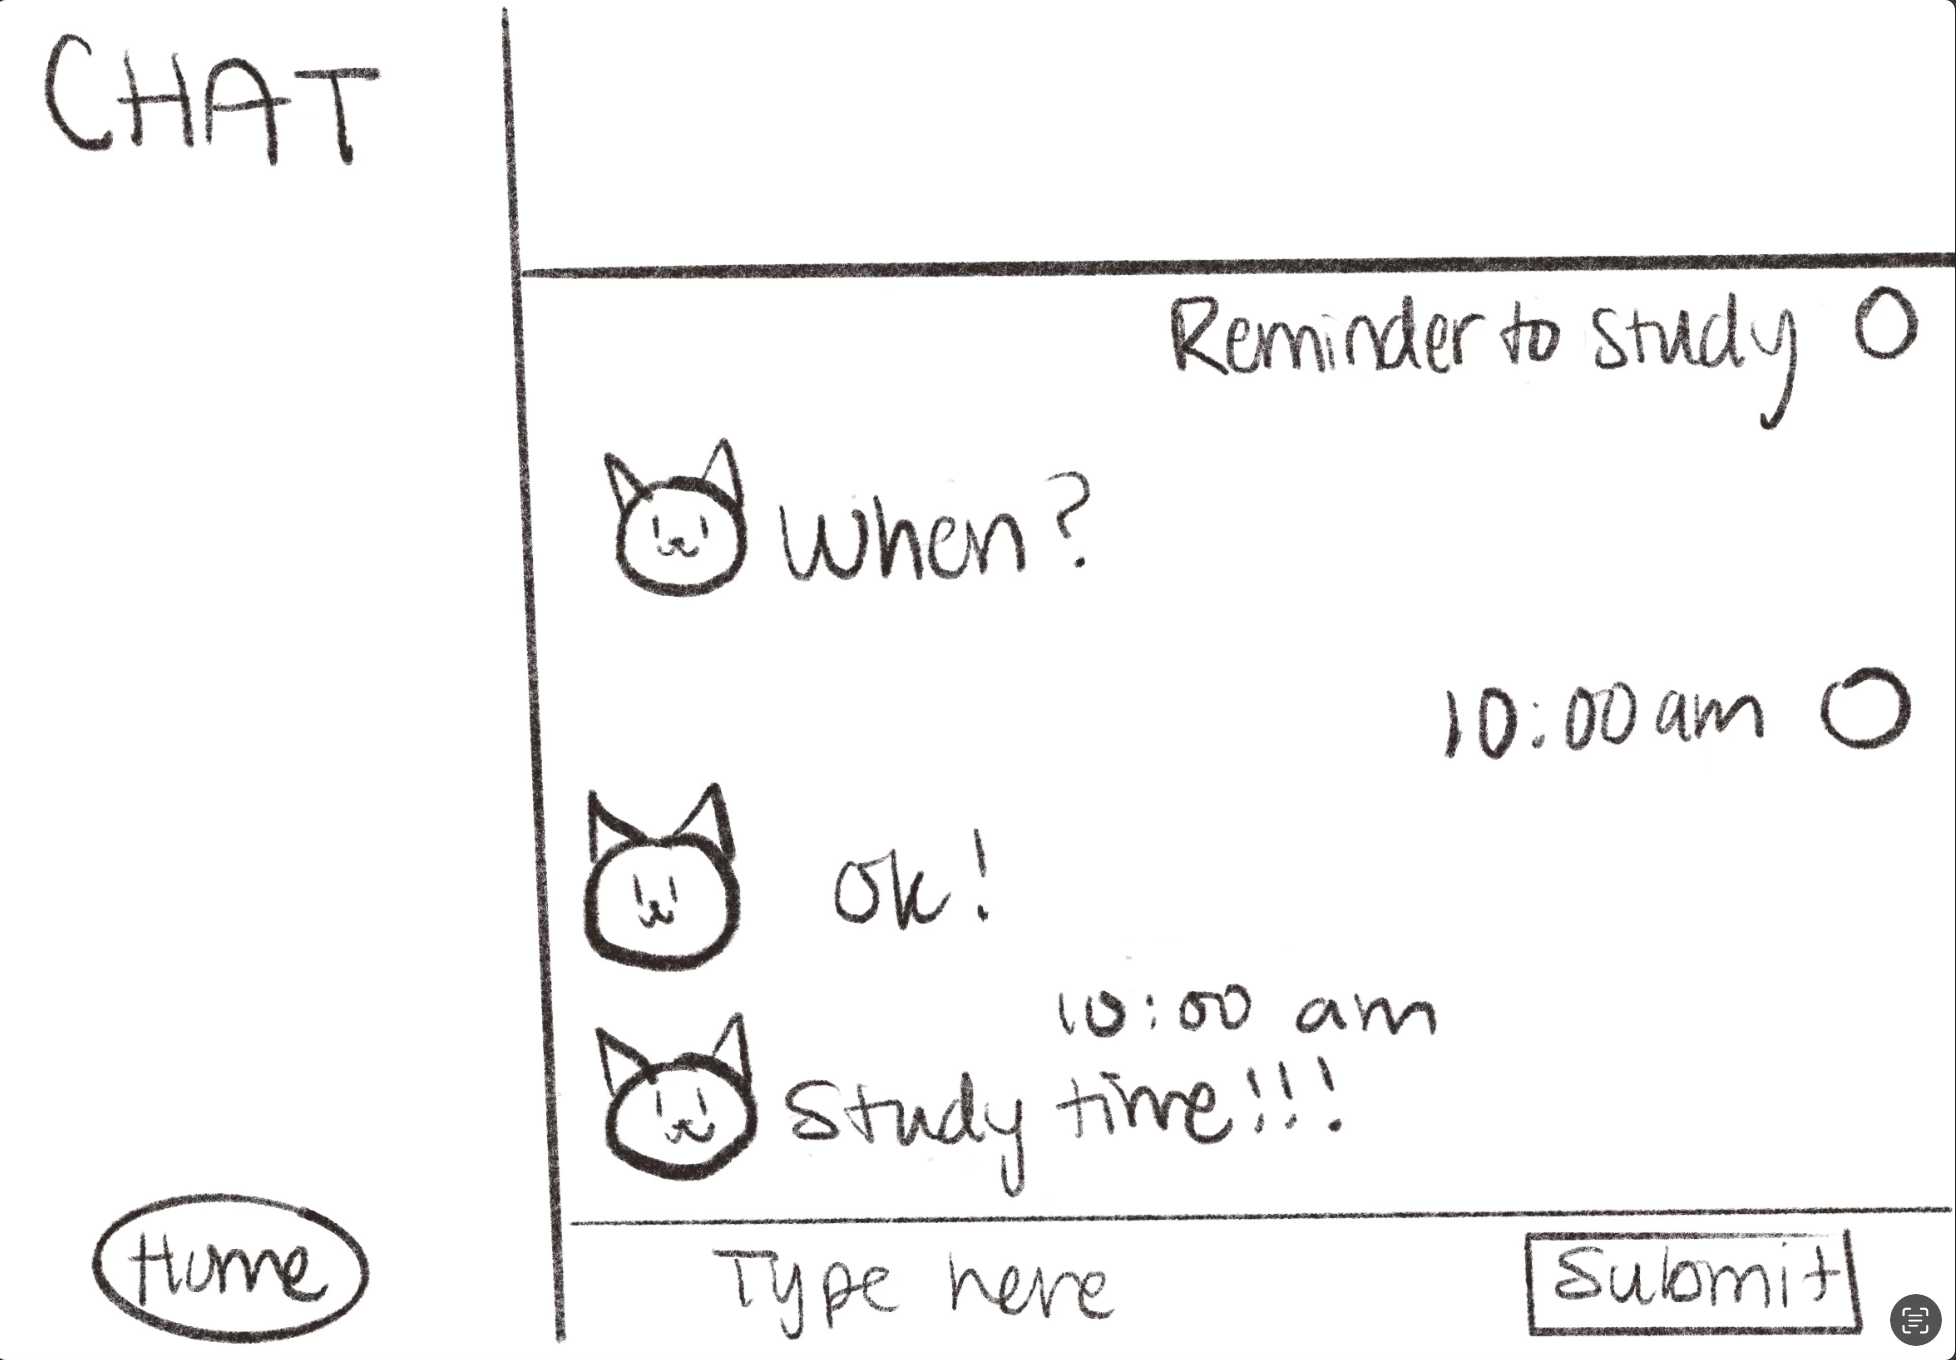 CHAT
Reminder to study
When?
10:00 am
Ok!
10:00 am
Study time!!!
Home
Type here
Submit